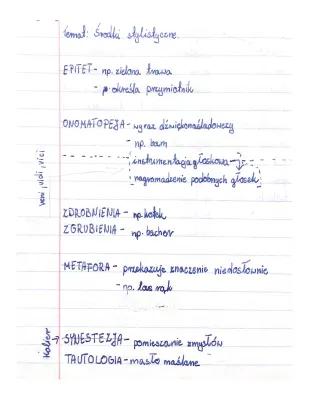 temat: Środki stylistyczne.
EPITET - np. zielona trawa
- określa przymiotnik
ONOMATOPEJA - wyraz dźwiękonaśladowczy
- np. bam
instrumentacja głoskowa -
nagromadzenie podobnych głosek
veni, vidi, vici
ZDROBNIENIA - np. kotek
ZGRUBIENIA - np.
METAFORA - przekazuje znaczenie niedosłownie
- np. las rąk
→ SYNESTEZJA - pomieszanie zmysłów
TAUTOLOGIA - masło maślane